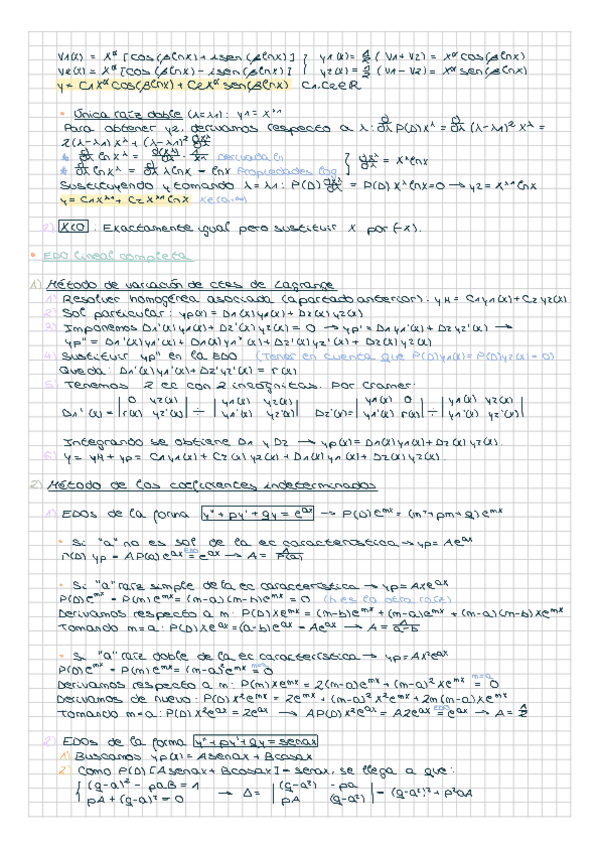 V1(x) = x^α [cos(βlnx) + i sen(βlnx)] } y1(x) = 1/2 (V1 + V2) = x^α cos(βlnx)
V2(x) = x^α [cos(βlnx) - i sen(βlnx)] } y2(x) = (V1 - V2) = x^α sen(βlnx)
y = C1 x^α cos(βlnx) + C2 x^α sen(βlnx) C1,C2∈R
• Única raíz doble (λ=λ1): y1 = x^λ1
Para obtener y2, derivamos respecto a λ: d/dλ P(D)x^λ = d/dλ (λ-λ1)² x^λ =
2(λ-λ1) x^λ + (λ-λ1)² dx^λ/dλ
* d/dλ lnx^λ = d(x^λ)/dλ · 1/x^λ derivada ln } dx^λ/dλ = x^λ lnx
* d/dλ lnx^λ = d/dλ λlnx = lnx Propiedades log
Sustituyendo y tomando λ = λ1: P(D) dx^λ/dλ = P(D) x^λ lnx = 0 → y2 = x^λ1 lnx
y = C1 x^λ1 + C2 x^λ1 lnx x∈(0,∞)
2) x<0 : Exactamente igual pero sustituir x por (-x).
• EDO lineal completa
1) Método de variación de ctes de Lagrange
1) Resolver homogénea asociada (apartado anterior): yH = C1y1(x) + C2y2(x)
2) Sol particular: yp(x) = D1(x)y1(x) + D2(x)y2(x)
3) Imponemos D1'(x)y1(x) + D2'(x)y2(x) = 0 → yp' = D1y1'(x) + D2y2'(x) →
yp'' = D1'(x)y1'(x) + D1(x)y1''(x) + D2'(x)y2'(x) + D2(x)y2''(x)
4) Sustituir yp'' en la EDO (Tener en cuenta que P(D)y1(x) = P(D)y2(x) = 0)
Queda: D1'(x)y1'(x) + D2'y2'(x) = r(x)
5) Tenemos 2 ec con 2 incógnitas. Por Cramer:
D1'(x) = |0 y2(x); r(x) y2'(x)| ÷ |y1(x) y2(x); y1'(x) y2'(x)| D2'(x) = |y1(x) 0; y1'(x) r(x)| ÷ |y1(x) y2(x); y1'(x) y2'(x)|
Integrando se obtiene D1 y D2 → yp(x) = D1(x)y1(x) + D2(x)y2(x).
6) y = yH + yp = C1y1(x) + C2(x)y2(x) + D1(x)y1(x) + D2(x)y2(x).
2) Método de los coeficientes indeterminados
1) EDOs de la forma y'' + py' + qy = e^ax → P(D)e^mx = (m²+pm+q)e^mx
• Si "a" no es sol de la ec característica → yp = Ae^ax
P(D) yp = AP(a)e^ax =EDO= e^ax → A = 1/P(a)
• Si "a" raíz simple de la ec característica → yp = Axe^ax
P(D)e^mx = P(m)e^mx = (m-a)(m-b)e^mx = 0 (b es la otra raíz)
Derivamos respecto a m: P(D)xe^mx = (m-b)e^mx + (m-a)e^mx + (m-a)(m-b)xe^mx
Tomando m=a: P(D)xe^ax = (a-b)e^ax = Ae^ax → A = 1/a-b
• Si "a" raíz doble de la ec característica → yp = Ax²e^ax
P(D)e^mx = P(m)e^mx = (m-a)²e^mx =m=a= 0
Derivamos respecto a m: P(D)xe^mx = 2(m-a)e^mx + (m-a)²xe^mx =m=a= 0
Derivamos de nuevo: P(D)x²e^mx = 2e^mx + (m-a)²x²e^mx + 2m(m-a)xe^mx
Tomando m=a: P(D)x²e^ax = 2e^ax → AP(D)x²e^ax = A2e^ax =EDO= e^ax → A = 1/2
2) EDOs de la forma y'' + py' + qy = senax
1) Buscamos yp(x) = Asenax + Bcosax
2) Como P(D)[Asenax + Bcosax] = senax, se llega a que:
{ (q-a)² - paB = 1
{ pA + (q-a)² = 0 → Δ = |(q-a²) -pa; pA (q-a²)| = (q-a²)² + p²aA